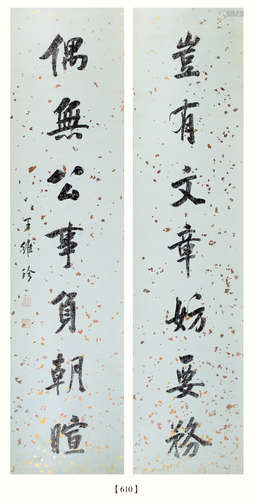 豈有文章妨要務
偶無公事負朝暄
王維珍
【610】